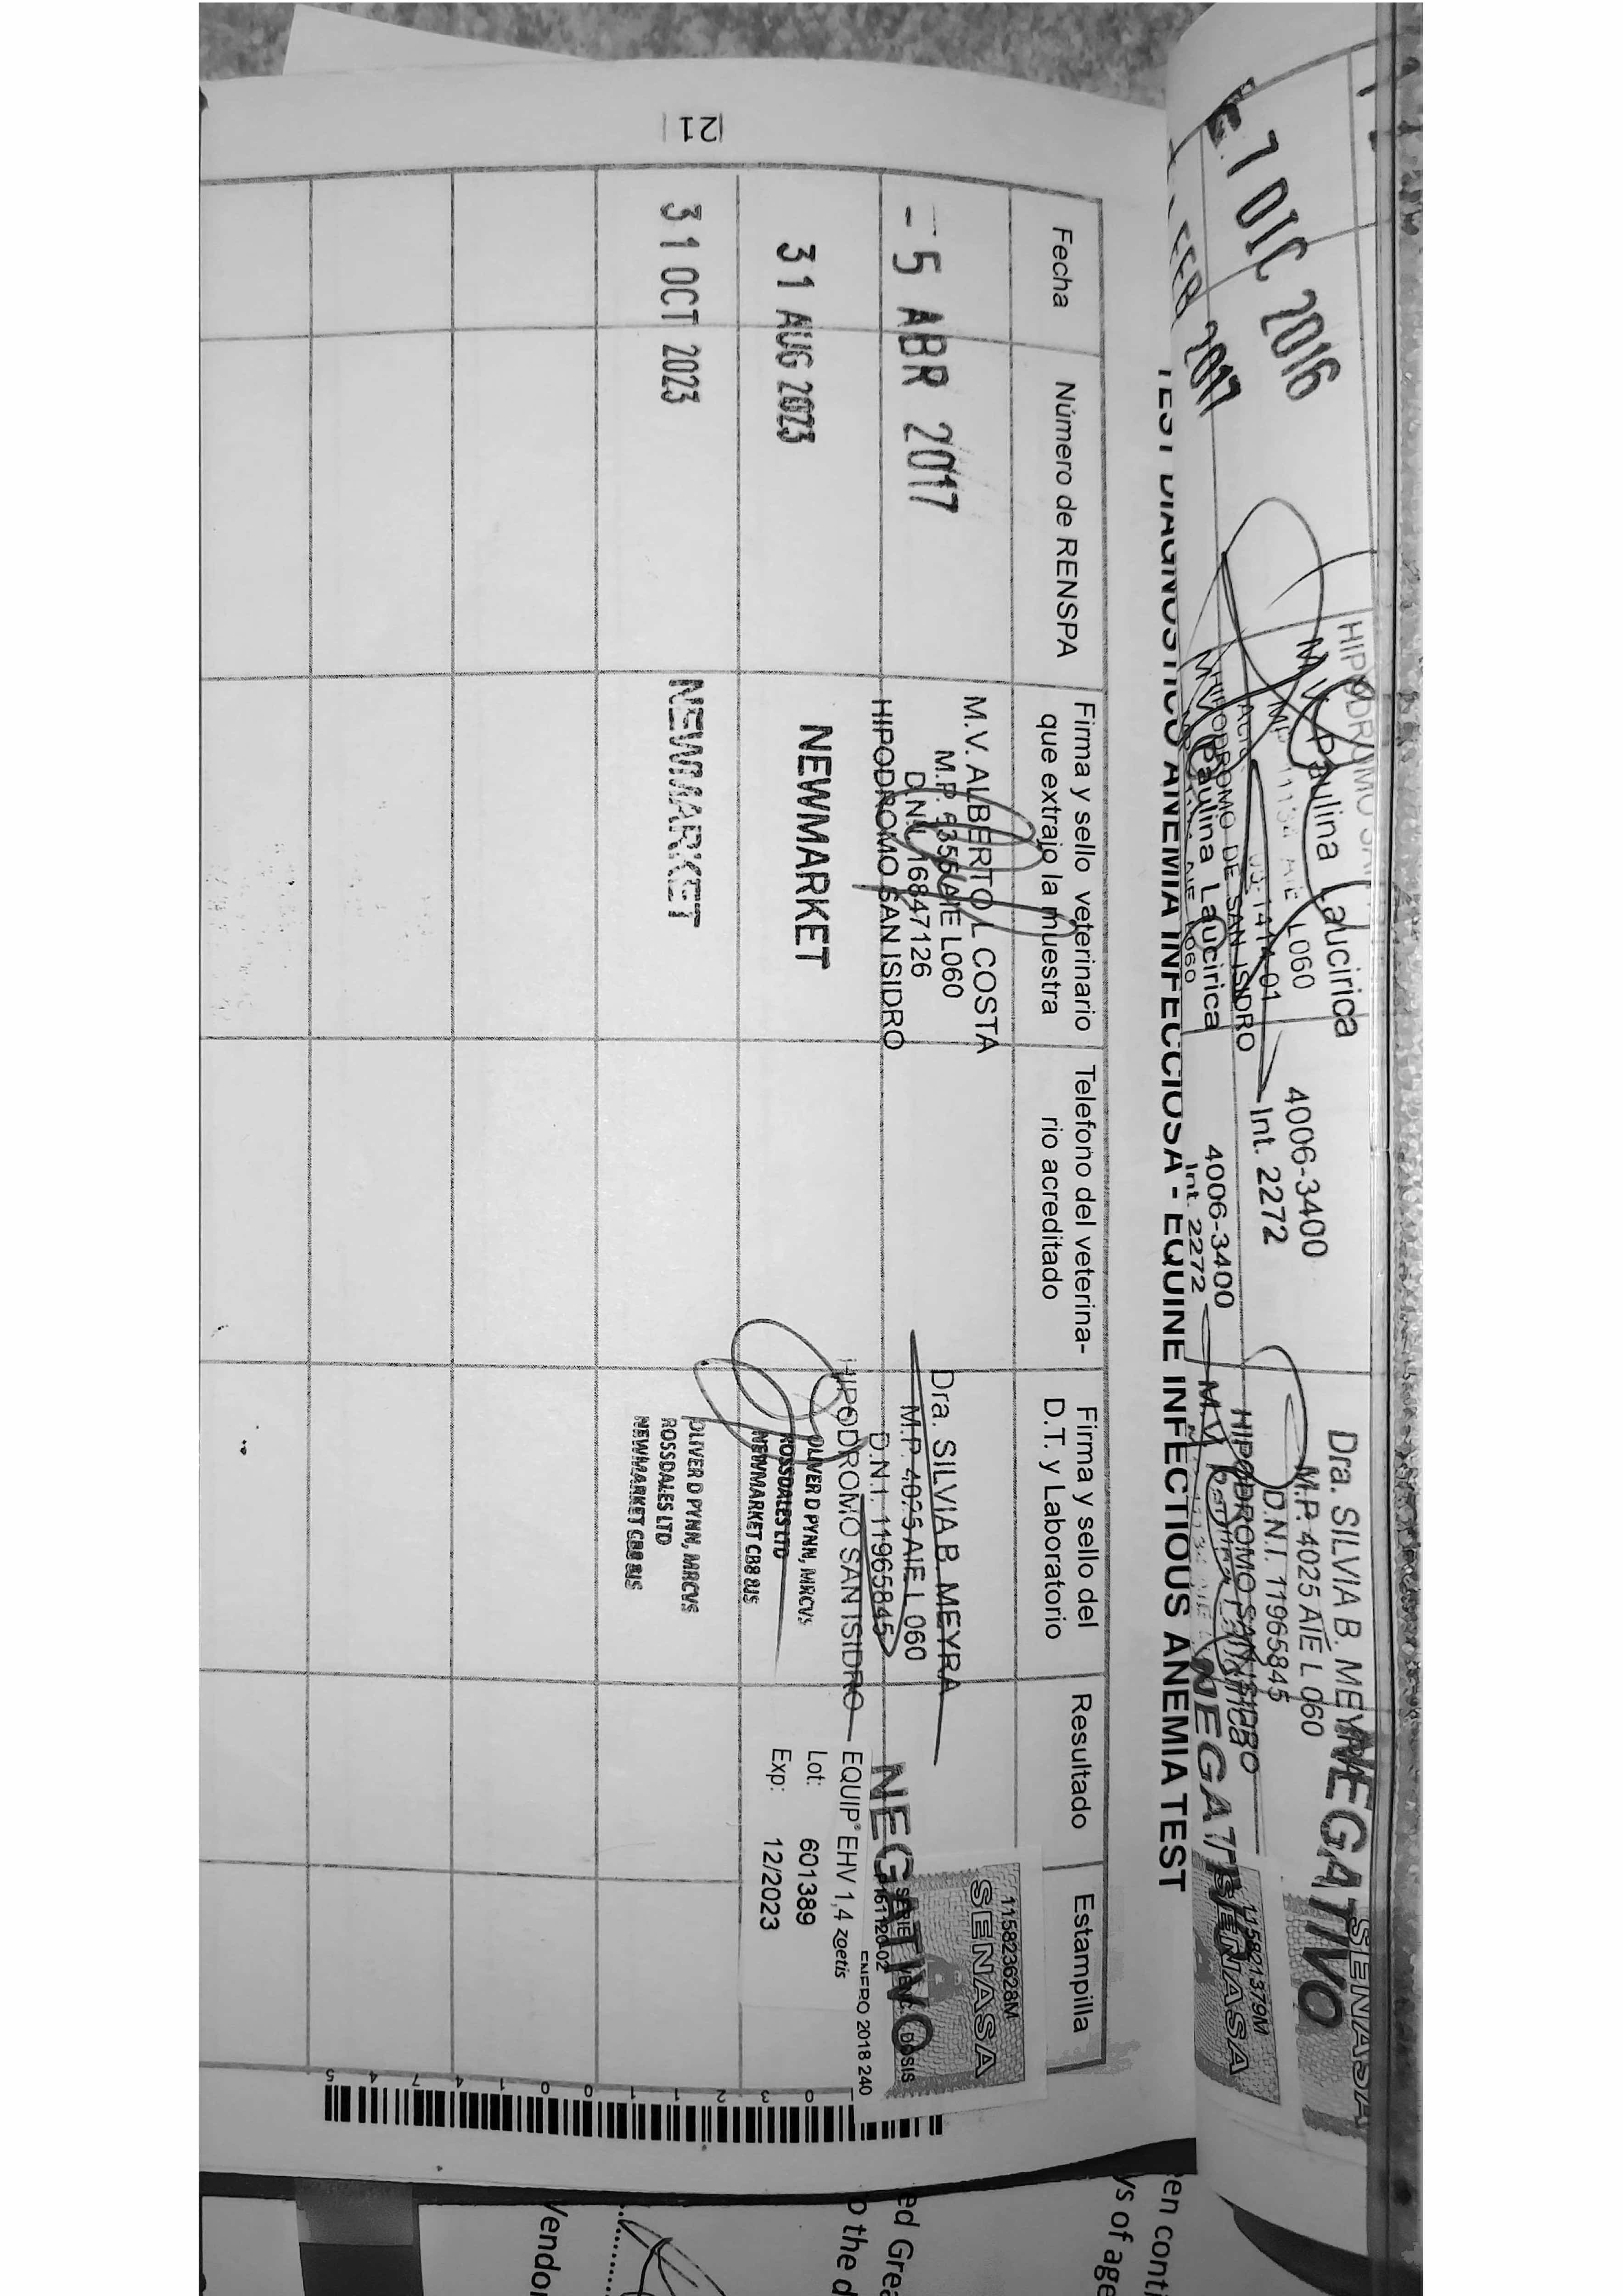 7 DIC 2016
HIPODROMO
M.V. Paulina Laucirica
L060
4006-3400
Int. 2272
Dra. SILVIA B. MEYRA
M.P. 4025 AIE L 060
D.N.I. 11965845
HIPODROMO SAN ISIDRO
NEGATIVO
SENASA
FEB 2017
HIPODROMO DE SAN ISIDRO
M.V. Paulina Laucirica
4006-3400
Int. 2272
NEGATIVO
115821379M
SENASA
TEST DIAGNOSTICO ANEMIA INFECCIOSA - EQUINE INFECTIOUS ANEMIA TEST
Fecha
Número de RENSPA
Firma y sello veterinario
que extrajo la muestra
Telefono del veterina-
rio acreditado
Firma y sello del
D.T. y Laboratorio
Resultado
Estampilla
- 5 ABR 2017
M.V. ALBERTO L COSTA
M.P. 9355 AIE L060
D.N.I. 16847126
HIPODROMO SAN ISIDRO
Dra. SILVIA B. MEYRA
M.P. 4025 AIE L 060
D.N.I. 11965845
HIPODROMO SAN ISIDRO
NEGATIVO
115823628M
SENASA
SERIE VENC. DOSIS
ENERO 2018 240
31 AUG 2023
NEWMARKET
OLIVER D PYNN, MRCVS
ROSSDALES LTD
NEWMARKET CB8 8JS
EQUIP® EHV 1,4 zoetis
Lot: 601389
Exp: 12/2023
31 OCT 2023
NEWMARKET
OLIVER D PYNN, MRCVS
ROSSDALES LTD
NEWMARKET CB8 8JS
0 3 2 1 1 0 0 1 4 7 4 5
|21|
en cont
ys of age
ed Grea
o the d
Vendo